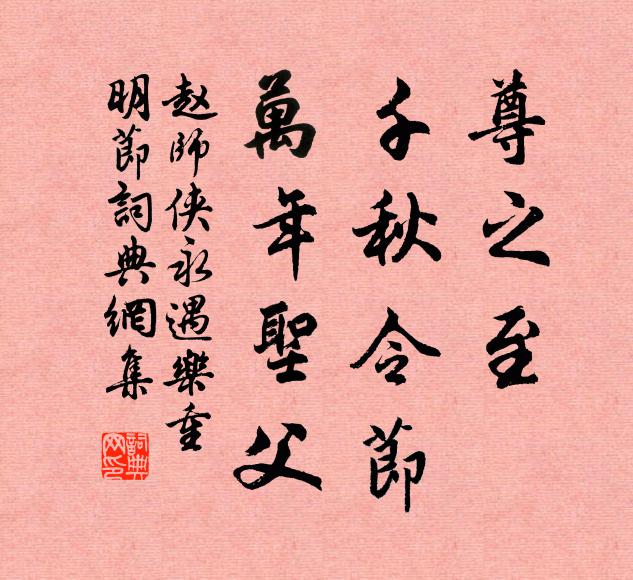 尊之至
千秋令節
萬年聖父
趙師俠永遇樂重
明節詞典網集
詞典網印